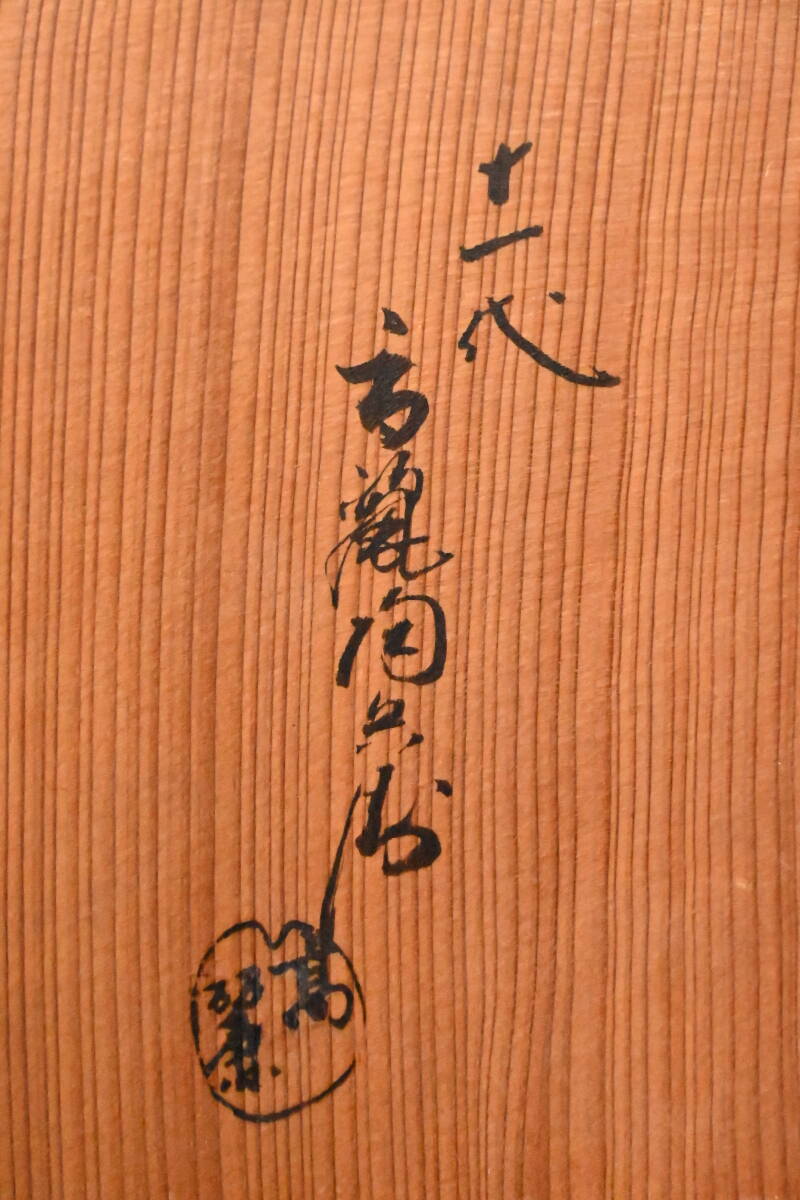 十一代
高麗陶兵衛
高麗